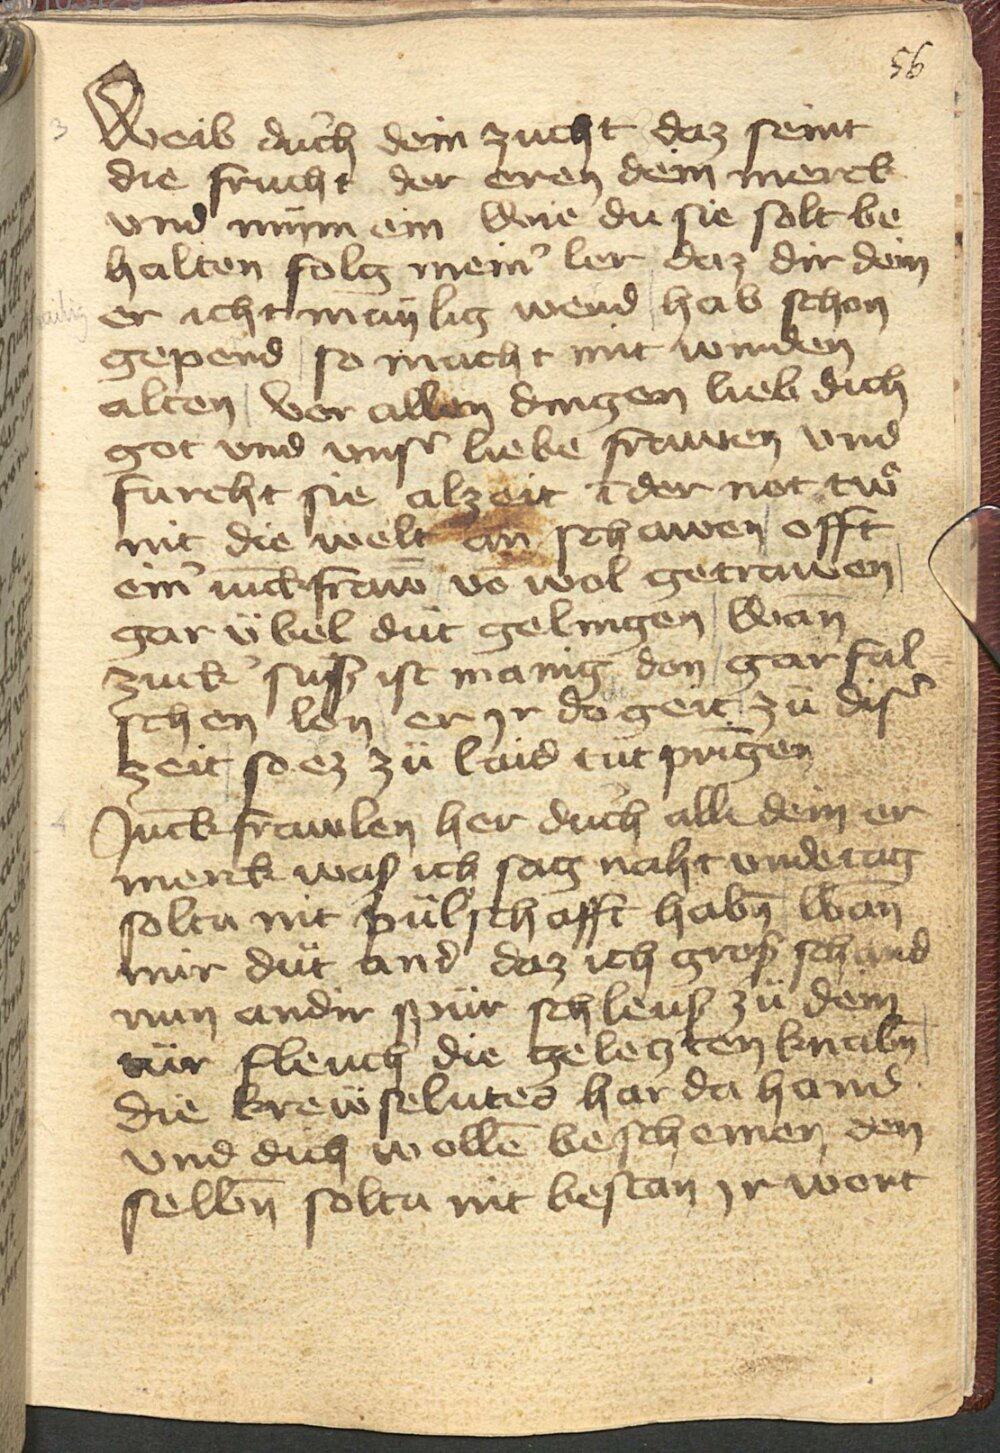 56
3
Weib durch dein zucht daz seint
die frucht der eren dein merck
vnd nÿm ein Wie du sie solt be
halten folg mein' ler daz dir dein
er icht maÿlig werd hab schon
gepend so macht mit wirden
alten Vor allen dingen lieb dich
got vnd vnsr' liebe frawen vnd
furcht sie alzeit ī der not tw
nit die welt an schawen offt
ein' iūckfraw vō wol getrawen
gar übel düt gelingen Wan̄
zuck' süß ist manig don gar fal
schen len er yr do geit zü dis'
zeit so ez zü laid tüt pringen
4
Jūckfrawlen her durch all dein er
merck waß ich sag naht vnde tag
soltu nit pülschafft habn̄ Wan̄
mir düt and daz ich groß schand
nun an dir spür schleuß zü dein
tür fleuch die geleczten knabn̄
die krewseliites har da hand
vnd dich wollē beschemen den
selbn̄ soltu nit bestan yr wort